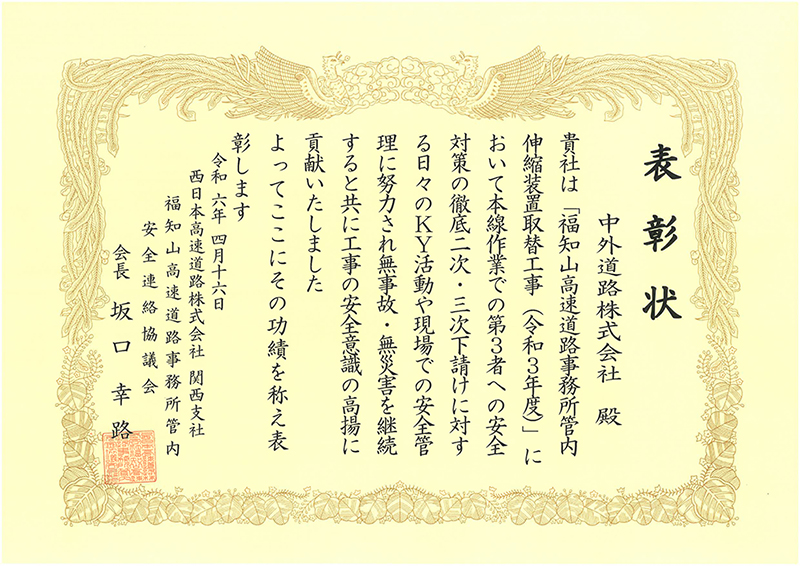 表彰状
中外道路株式会社 殿
貴社は「福知山高速道路事務所管内
伸縮装置取替工事(令和3年度)」に
おいて本線作業での第3者への安全
対策の徹底二次・三次下請けに対す
る日々のKY活動や現場での安全管
理に努力され無事故・無災害を継続
すると共に工事の安全意識の高揚に
貢献いたしました
よってここにその功績を称え表
彰します
令和六年四月十六日
西日本高速道路株式会社 関西支社
福知山高速道路事務所管内
安全連絡協議会
会長 坂口幸路